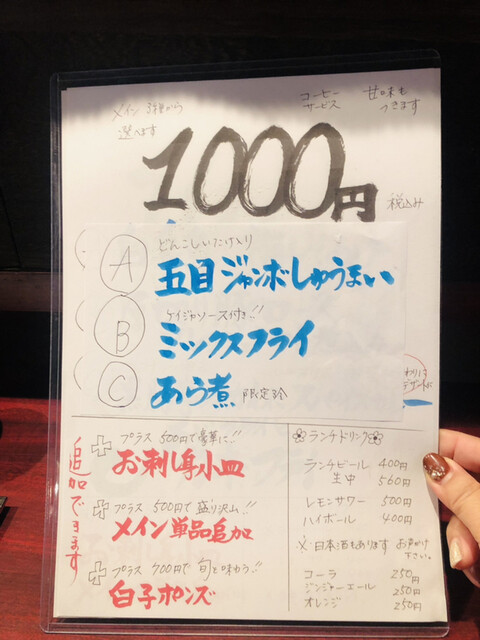 メイン 3種から
選べます
コーヒー
サービス
甘味も
つきます
1000円
税込み
A
どんこしいたけ入り
五目ジャンボしゅうまい
B
ケイジャンソース付き!!
ミックスフライ
C
あら煮 限定
わりに
デザートに
追加できます
プラス 500円で豪華に!!
お刺し身小皿
プラス 500円で盛り沢山!!
メイン単品追加
プラス 700円で 旬を味わう!!
白子ポンズ
ランチドリンク
ランチビール 400円
生中 560円
レモンサワー 500円
ハイボール 400円
※ 日本酒もあります お声かけ
下さい。
コーラ 250円
ジンジャーエール 250円
オレンジ 250円